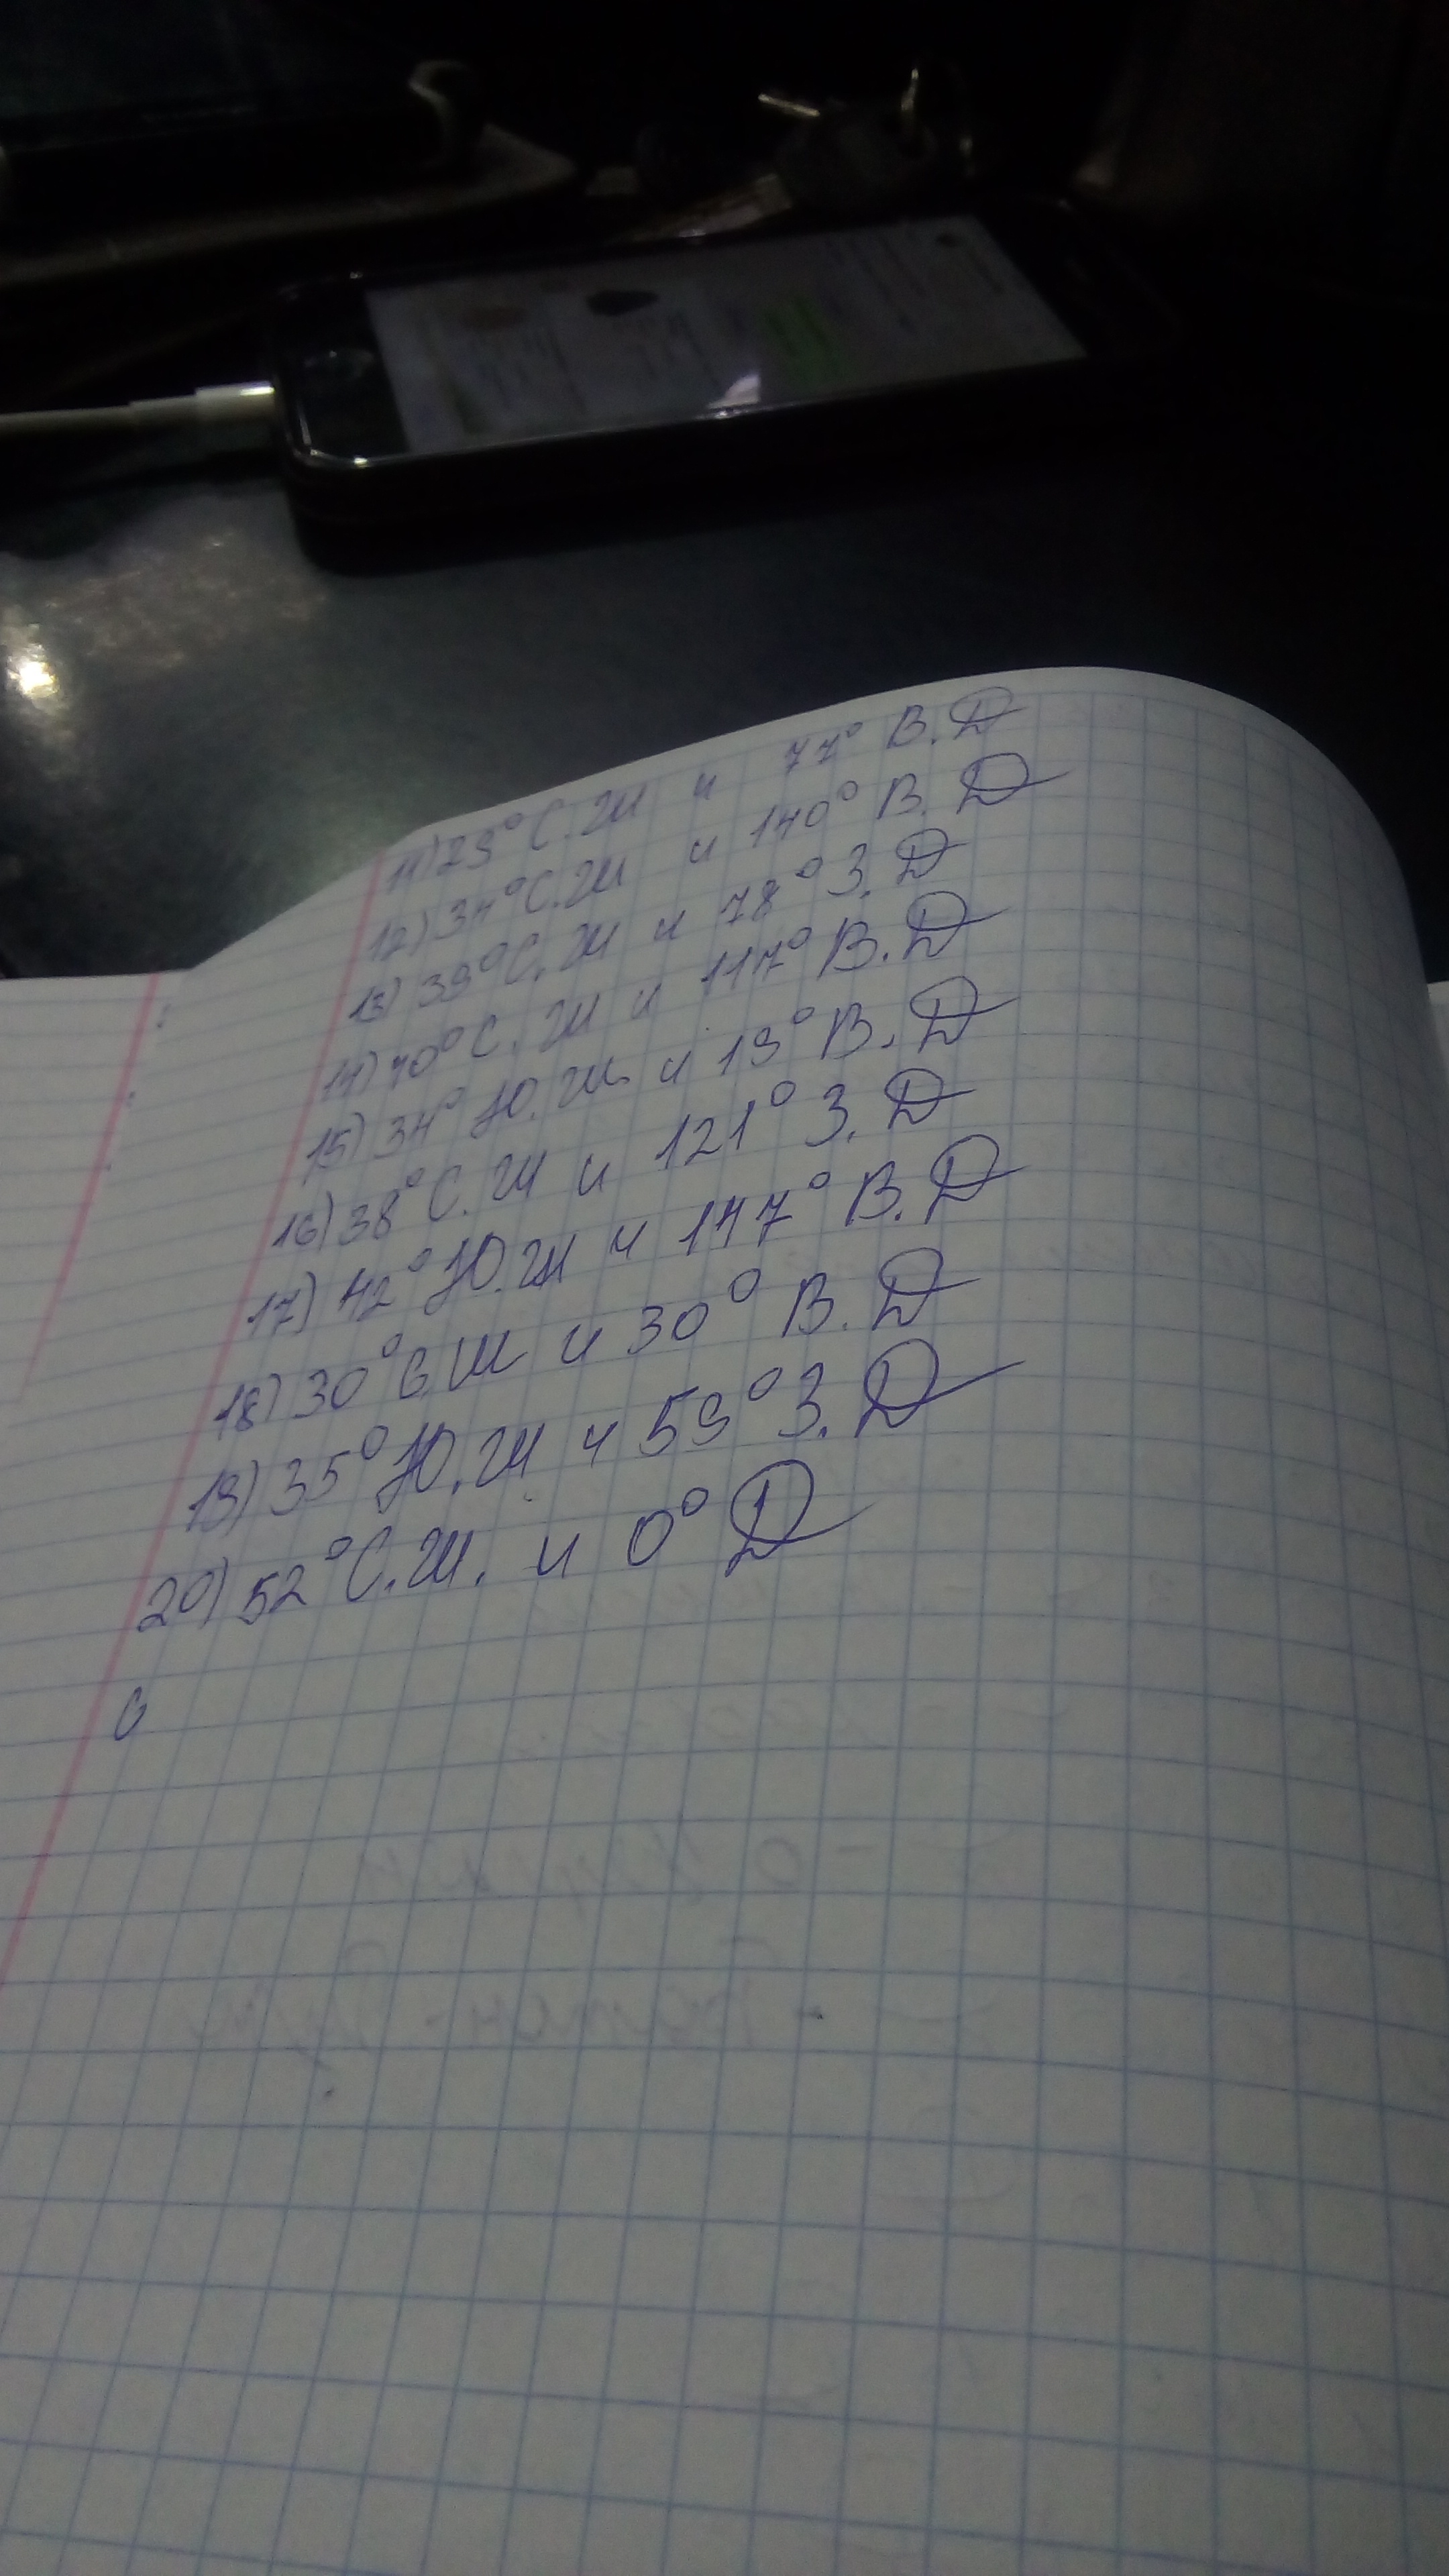 11) 29° С.Ш и 77° В.Д
12) 34° С.Ш и 140° В.Д
13) 39° С.Ш и 78° З.Д
14) 40° С.Ш и 117° В.Д
15) 34° Ю.Ш и 19° В.Д
16) 38° С.Ш и 121° З.Д
17) 42° Ю.Ш и 147° В.Д
18) 30° С.Ш и 30° В.Д
19) 35° Ю.Ш и 59° З.Д
20) 52° С.Ш. и 0° Д